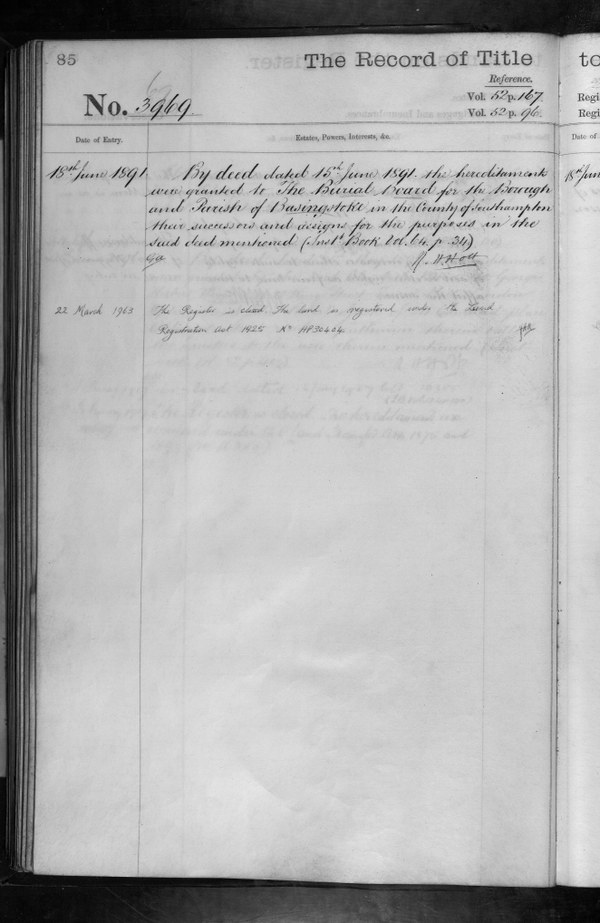 85
The Record of Title
Reference.
No. 3969.
Vol. 52 p. 167.
Vol. 52 p. 96.
Date of Entry.
Estates, Powers, Interests, &c.
18th June 1891
By deed dated 15th June 1891. the hereditaments
were granted to The Burial Board for the Borough
and Parish of Basingstoke in the County of Southampton
their successors and assigns for the purposes in the
said deed mentioned (Inst. Book Vol. 64. p. 34)
Holt
22 March 1963
The Register is closed. The land is registered under the Land
Registration Act 1925 No HP30404.
to
Regi
Regi
Date of
18th June